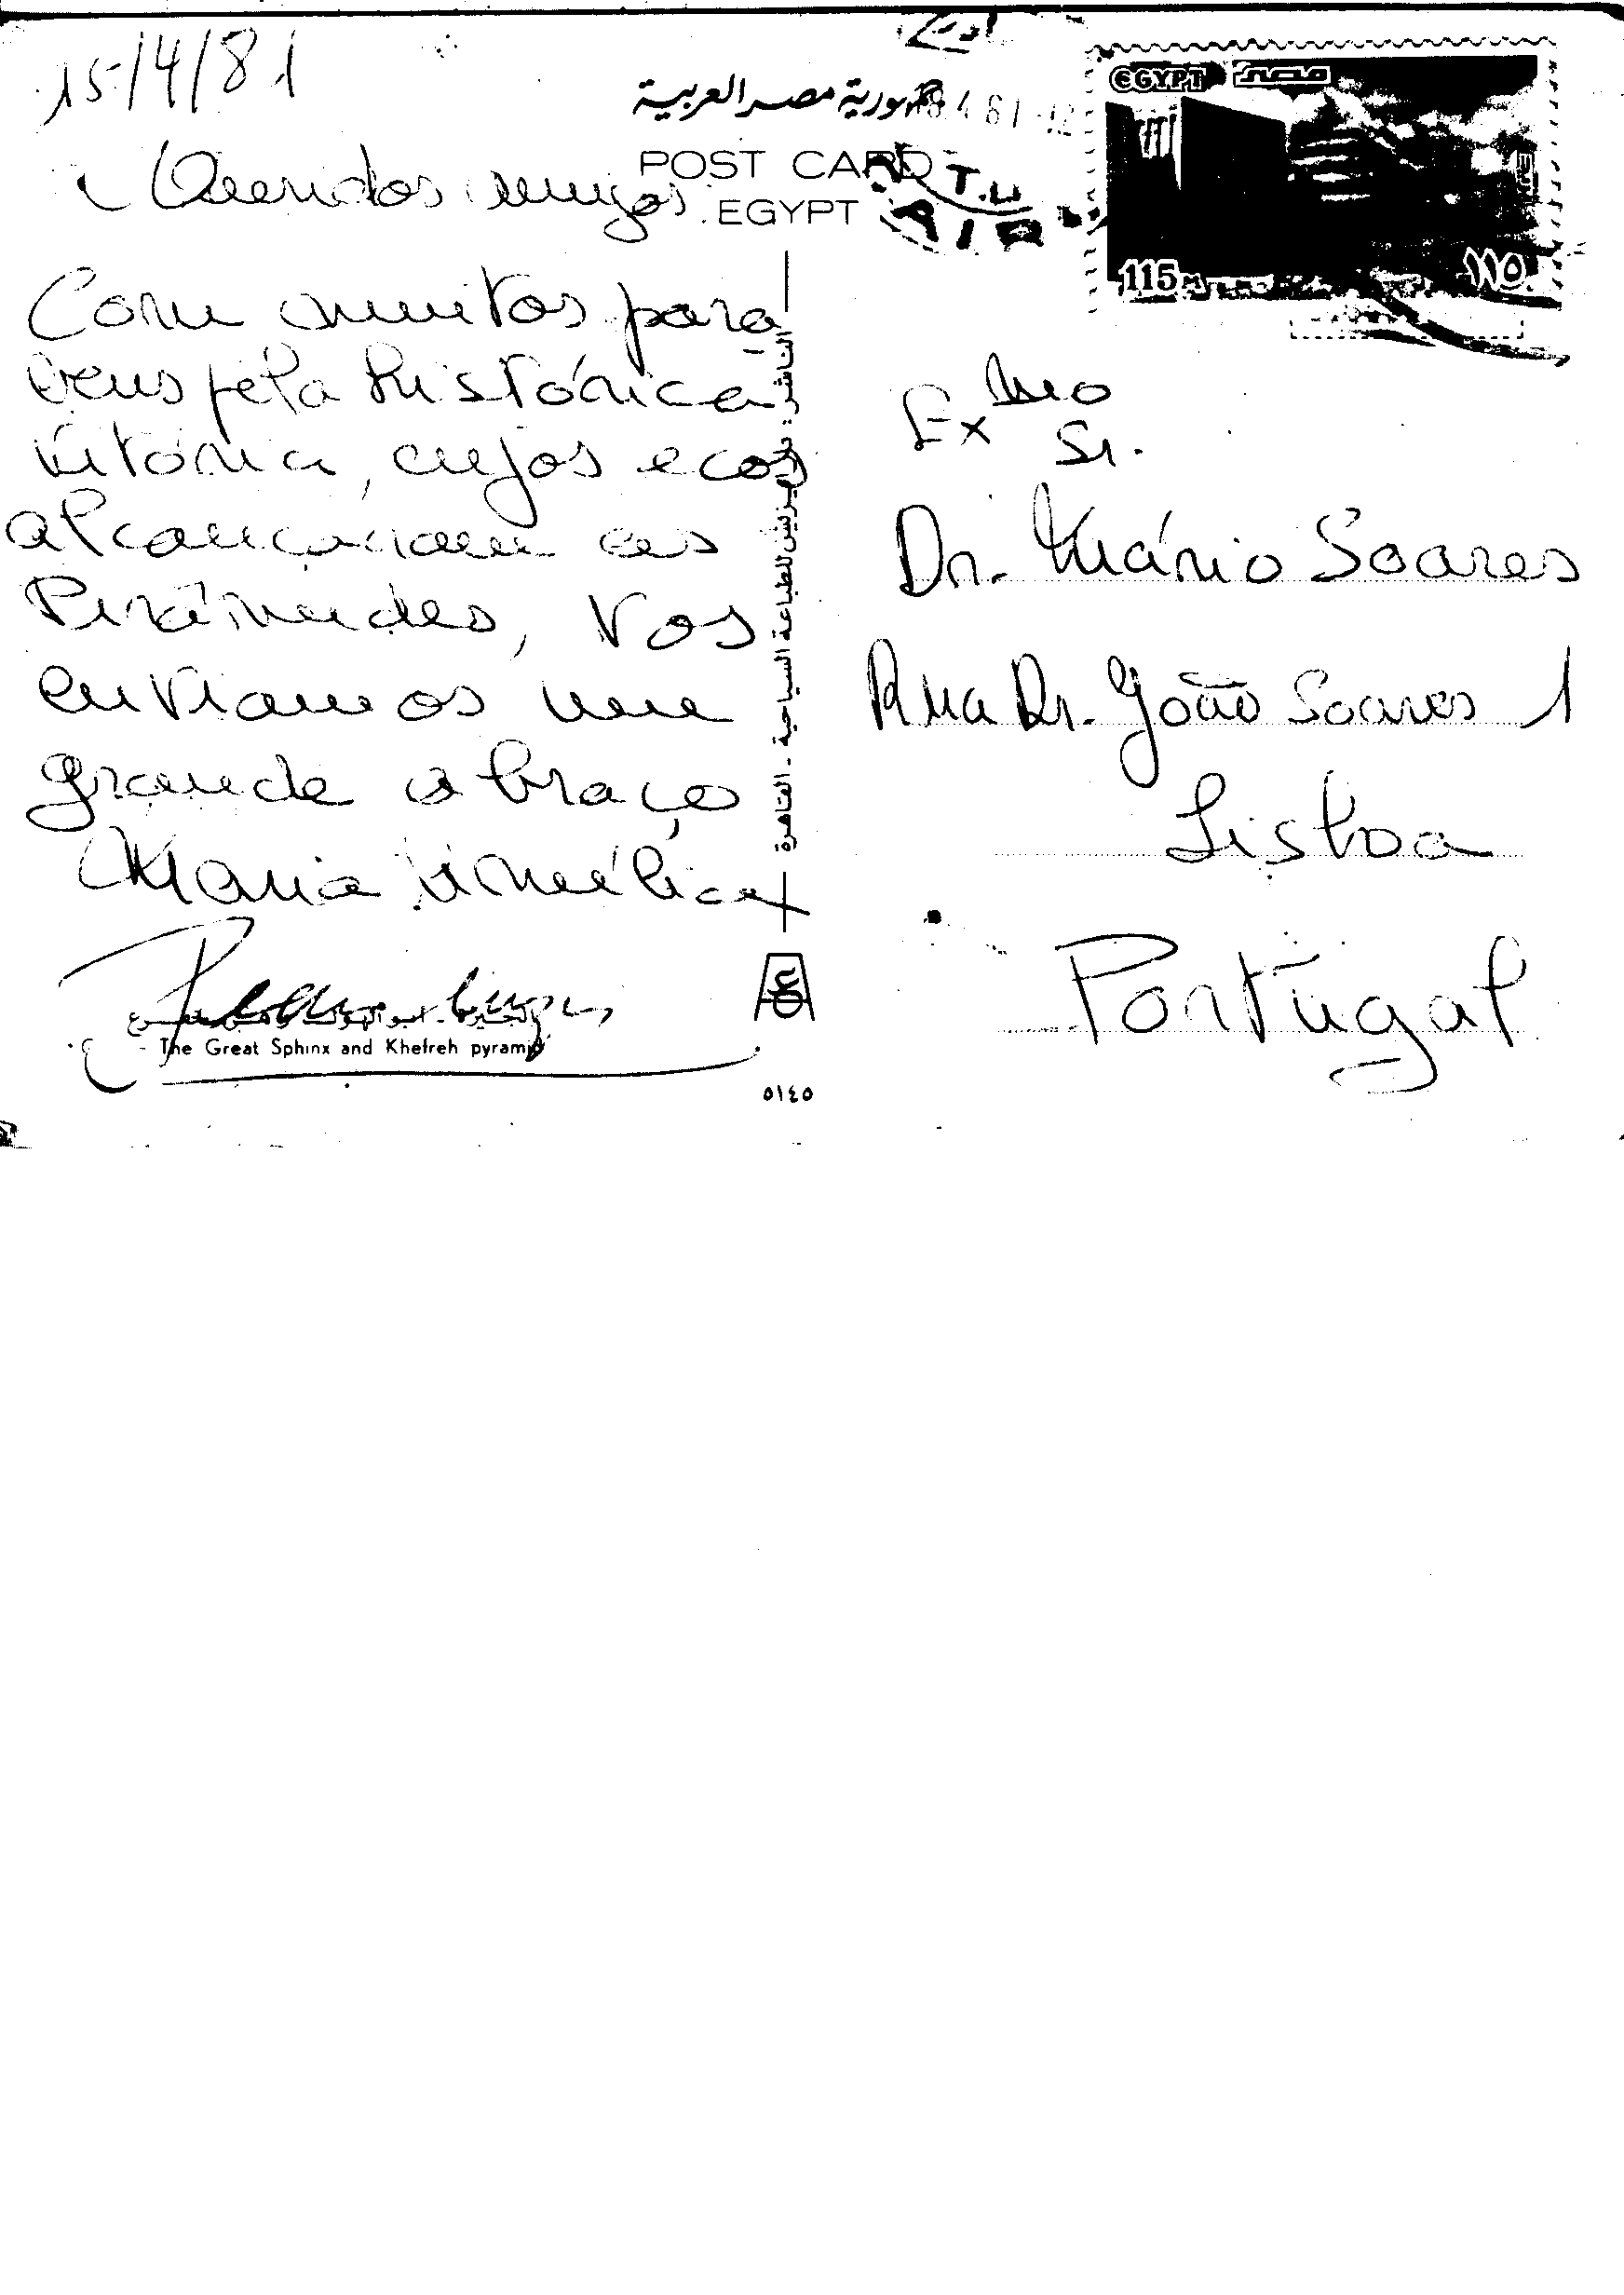 15/4/81
Queridos amigos
Com muitos para-
bens pela histórica
vitória, cujos ecos
alcançaram as
Pirâmides, vos
enviamos um
grande abraço
Maria Amélia
الجيزة - أبو الهول وهرم خفرع
The Great Sphinx and Khefreh pyramid
جمهورية مصر العربية
POST CARD
EGYPT
٥١٤٥
EGYPT مصر
115 ١١٥
Exmo
Sr.
Dr. Mário Soares
Rua Dr. João Soares 1
Lisboa
Portugal